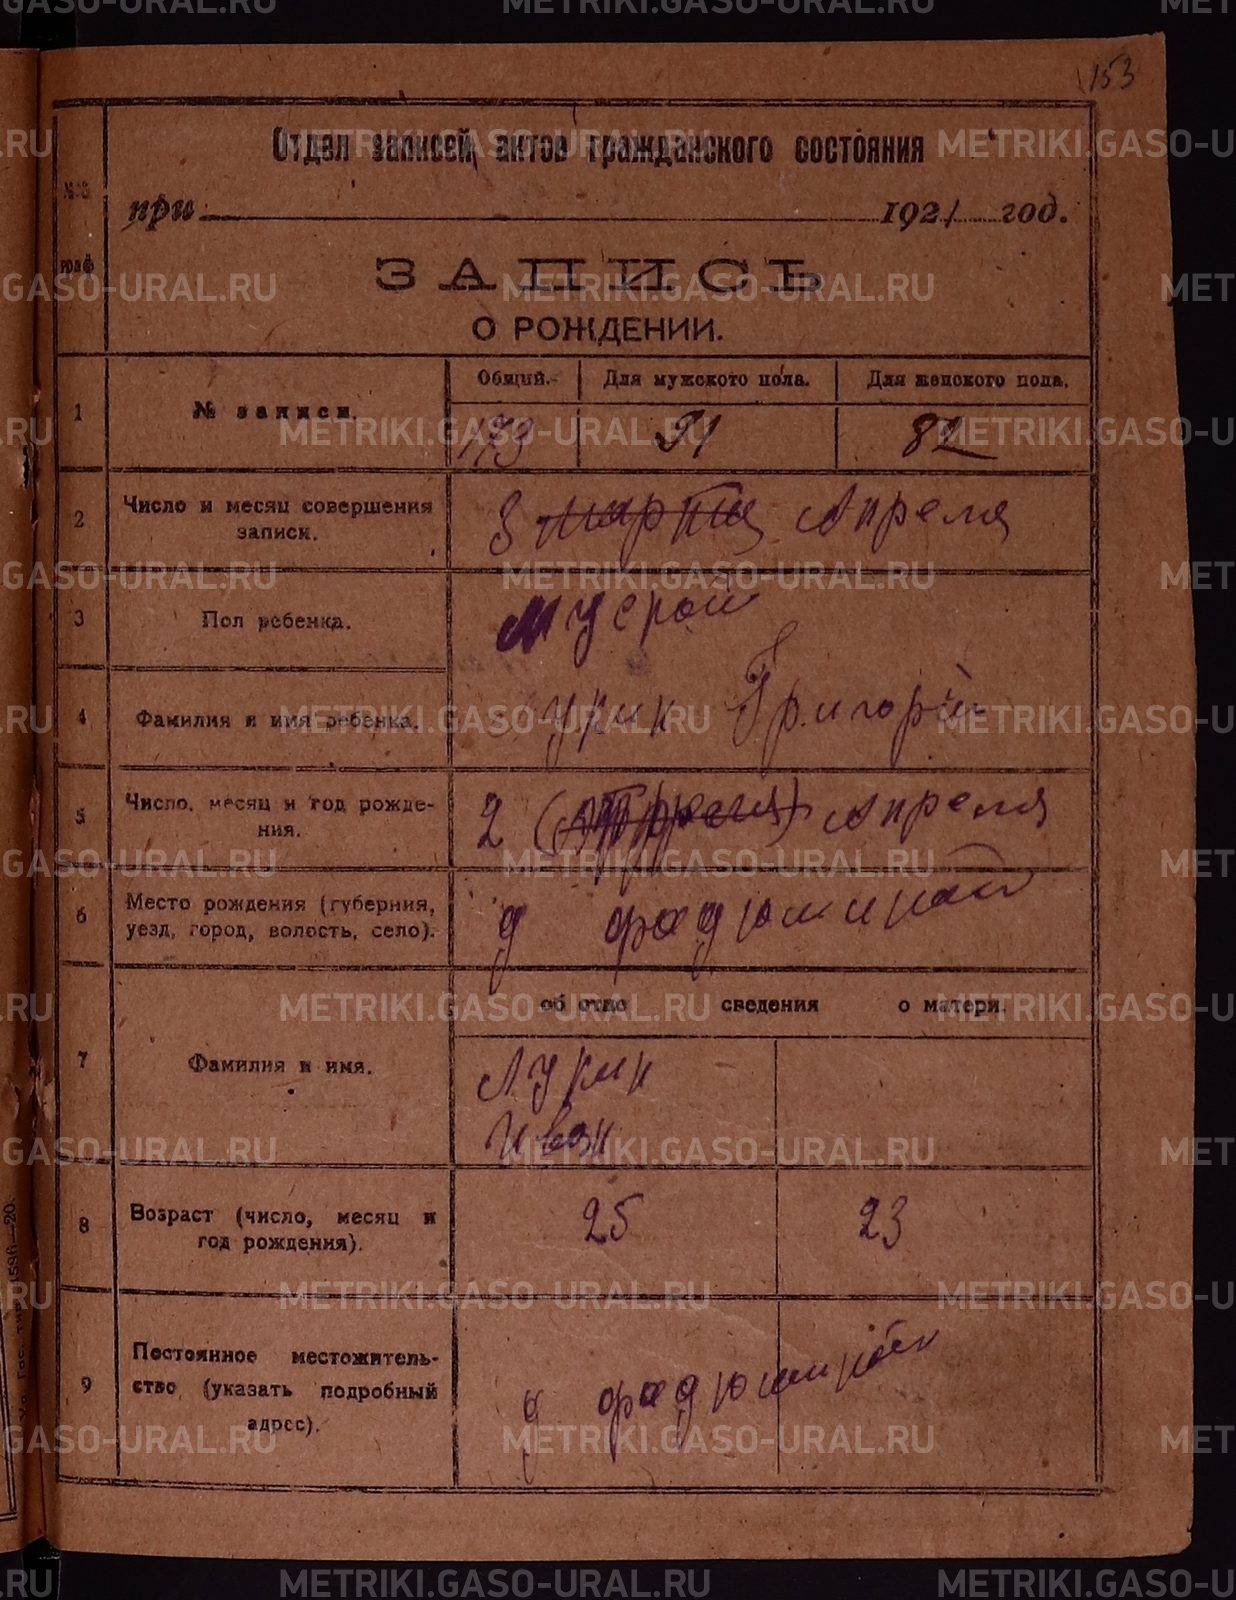 153
Отдел записей актов гражданского состояния
при 1921 год.
ЗАПИСЬ
О РОЖДЕНИИ.
Общий. Для мужского пола. Для женского пола.
1 № записи. 173 91 82
2 Число и месяц совершения записи. 3 марта Апреля
3 Пол ребенка.
4 Фамилия и имя ребенка. Григорий
5 Число, месяц и год рождения. 2 Апреля
6 Место рождения (губерния, уезд, город, волость, село). д
об отце сведения о матери.
7 Фамилия и имя. Лукин
Иван
8 Возраст (число, месяц и год рождения). 25 23
9 Постоянное местожительство (указать подробный адрес). д
METRIKI.GASO-URAL.RU